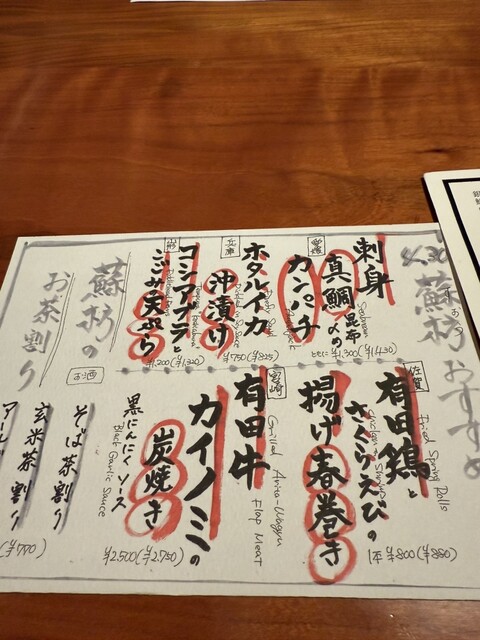 蘇枋おすすめ
刺身
真鯛の昆布〆
愛媛
カンパチ
ともに ¥1,300(¥1,430)
兵庫
ホタルイカ
沖漬け
¥750(¥825)
山形
コシアブラと
こごみ天ぷら
¥1,200(¥1,320)
佐賀
有田鶏と
さくらえびの
揚げ春巻き
Fried Spring Rolls
1本 ¥800(¥880)
宮崎
有田牛
カイノミの
炭焼き
Grilled Arita-Wagyu
Flap Meat
黒にんにくソース
Black Garlic Sauce
¥2,500(¥2,750)
蘇枋の
お茶割り
お酒
そば茶割り
玄米茶割り
(¥770)